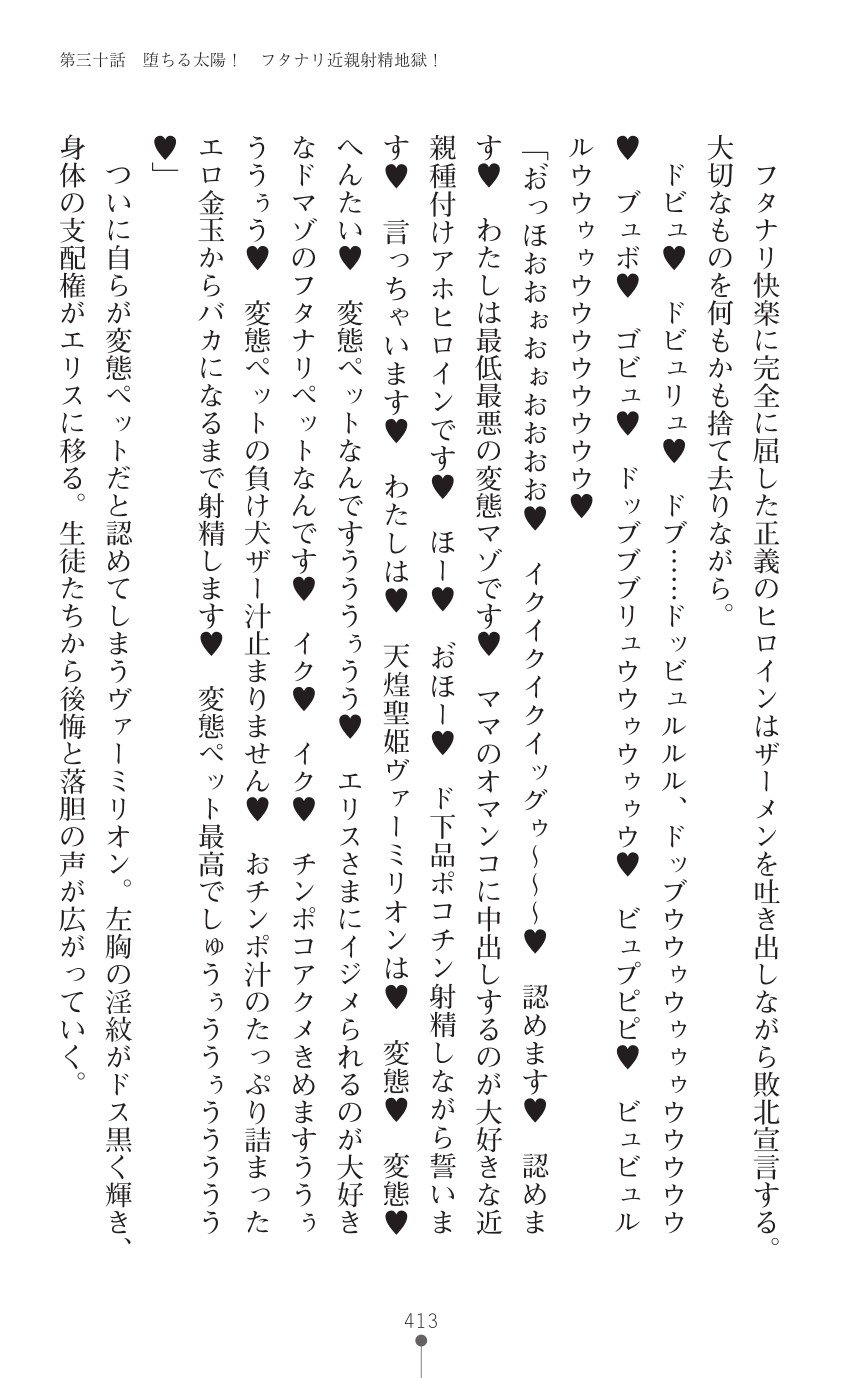 第三十話　堕ちる太陽！　フタナリ近親射精地獄！
　フタナリ快楽に完全に屈した正義のヒロインはザーメンを吐き出しながら敗北宣言する。
大切なものを何もかも捨て去りながら。
　ドビュ♥　ドビュリュ♥　ドブ……ドッビュルルル、ドッブウウゥウゥゥゥウウウウウ
♥　ブュボ♥　ゴビュ♥　ドッブブブリュウウゥウゥゥウ♥　ビュプピピ♥　ビュビュル
ルウウゥゥウウウウウウウウ♥
「お゛っほおおぉおぉおおおお♥　イクイクイクイッグゥ～～～♥　認めます♥　認めま
す♥　わたしは最低最悪の変態マゾです♥　ママのオマンコに中出しするのが大好きな近
親種付けアホヒロインです♥　ほー♥　お゛ほー♥　ド下品ポコチン射精しながら誓いま
す♥　言っちゃいます♥　わたしは♥　天煌聖姫ヴァーミリオンは♥　変態♥　変態♥
へんたい♥　変態ペットなんですうううぅうう♥　エリスさまにイジメられるのが大好き
なドマゾのフタナリペットなんです♥　イク♥　イク♥　チンポコアクメきめますううぅ
ううぅう♥　変態ペットの負け犬ザー汁止まりません♥　おチンポ汁のたっぷり詰まった
エロ金玉からバカになるまで射精します♥　変態ペット最高でしゅうぅううぅううううう
♥」
　ついに自らが変態ペットだと認めてしまうヴァーミリオン。左胸の淫紋がドス黒く輝き、
身体の支配権がエリスに移る。生徒たちから後悔と落胆の声が広がっていく。
413